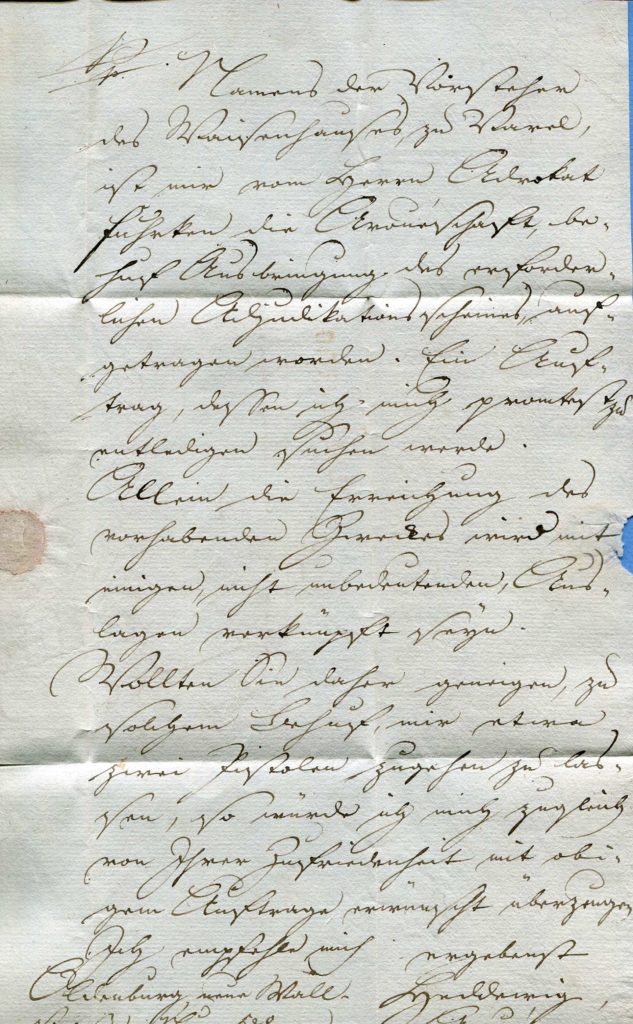 Namens der Vorsteher
des Waisenhauses zu Varel,
ist mir vom Herrn Advokat
Führken die Anwaltschaft, be-
huf Ausbringung des erforder-
lichen Adjudikationsscheines, auf-
getragen worden. Ein Auf-
trag, dessen ich mich promtest zu
entledigen suchen werde.
Allein die Erreichung des
vorhabenden Zweckes wird mit
einigen, nicht unbedeutenden, Aus-
lagen verknüpft seyn.
Wollten Sie daher geneigen, zu
solchem Behuf, mir etwa
zwei Pistolen zugehen zu las-
sen, so würde ich mich zugleich
von Ihrer Zufriedenheit mit obi-
gem Auftrage erwünscht überzeugen
Ich empfehle mich ergebenst
Oldenburg, neue Wall. Heddewig,